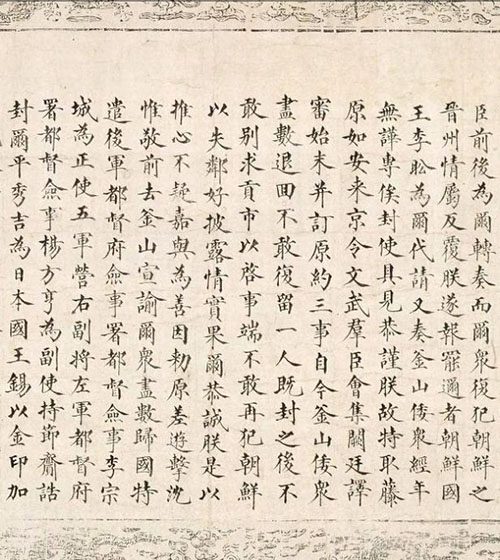 臣前後為爾轉奏而爾衆復犯朝鮮之
晉州情屬反覆朕遂報罷邇者朝鮮國
王李昖為爾代請又奏釜山倭衆經年
無譁專俟封使具見恭謹朕故特取藤
原如安来京令文武羣臣會集闕廷譯
審始末并訂原約三事自今釜山倭衆
盡數退回不敢復留一人既封之後不
敢别求貢市以啓事端不敢再犯朝鮮
以失鄰好披露情實果爾恭誠朕是以
推心不疑嘉與為善因勑原差遊擊沈
惟敬前去釜山宣諭爾衆盡數歸國特
遣後軍都督府僉事署都督僉事李宗
城為正使五軍營右副将左軍都督府
署都督僉事楊方亨為副使持節齎誥
封爾平秀吉為日本國王錫以金印加